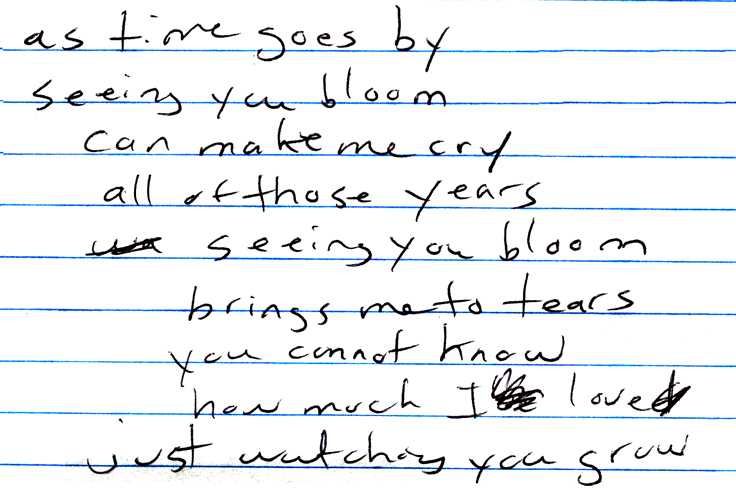 as time goes by
seeing you bloom
can make me cry
all of those years
seeing you bloom
brings me to tears
you cannot know
how much I love
just watching you grow